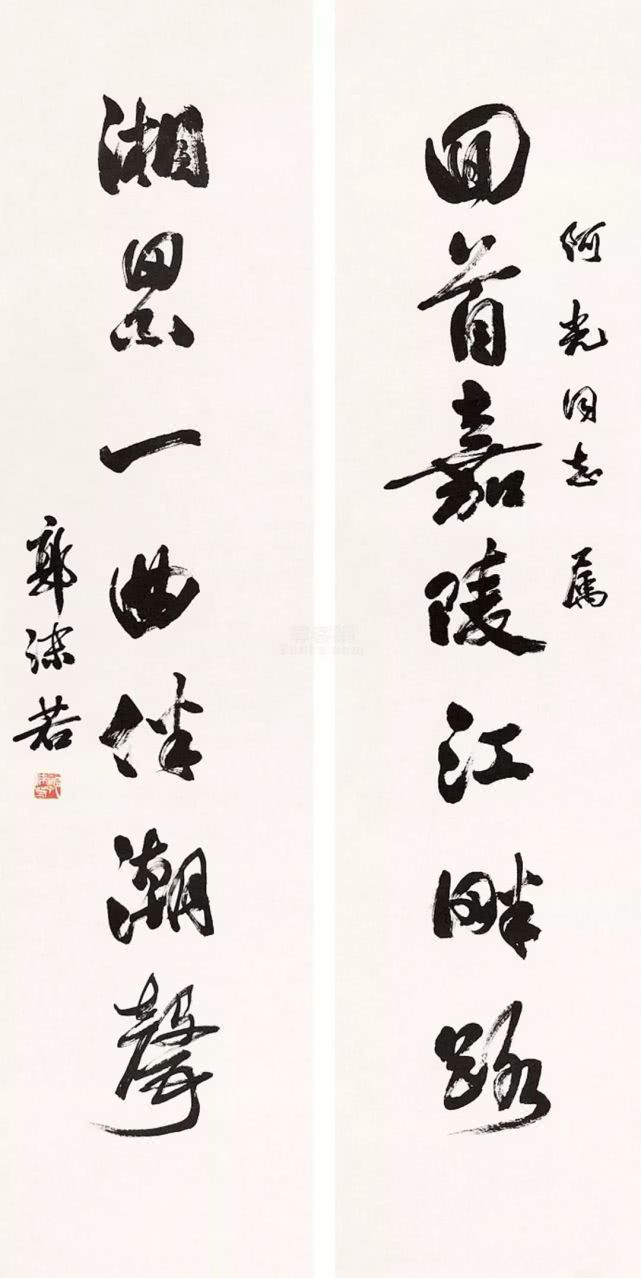 何光同志 属
回首嘉陵江畔路
湘累一曲伴潮聲
郭沫若